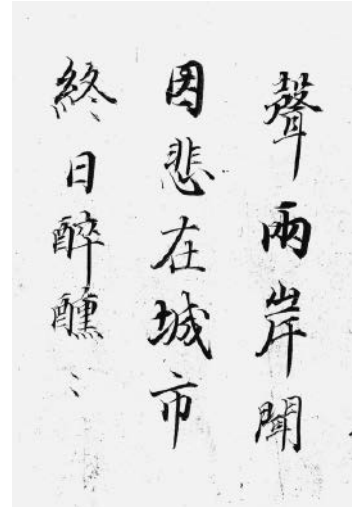 聲兩岸聞
因悲在城市
終日醉醺〻